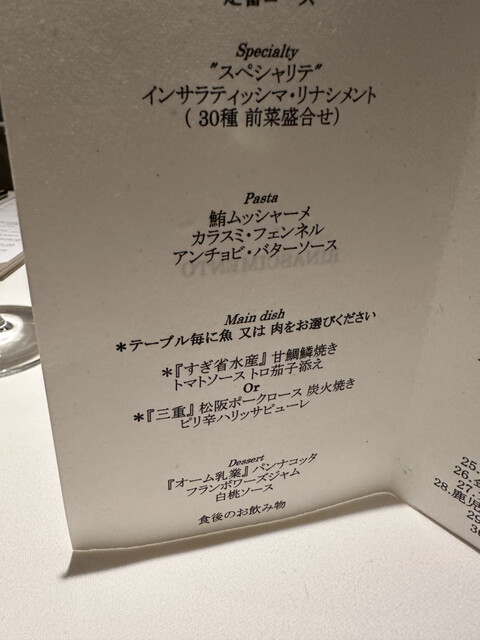 定番コース
Specialty
"スペシャリテ"
インサラティッシマ・リナシメント
( 30種 前菜盛合せ)
Pasta
鮪ムッシャーメ
カラスミ・フェンネル
アンチョビ・バターソース
RINASCIMENTO
Main dish
*テーブル毎に魚 又は 肉をお選びください
*『すぎ省水産』 甘鯛鱗焼き
トマトソース トロ茄子添え
Or
*『三重』 松阪ポークロース 炭火焼き
ピリ辛ハリッサピューレ
Dessert
『オーム乳業』 パンナコッタ
フランボワーズジャム
白桃ソース
食後のお飲み物
25.
26.
27.
28.鹿児
29
30